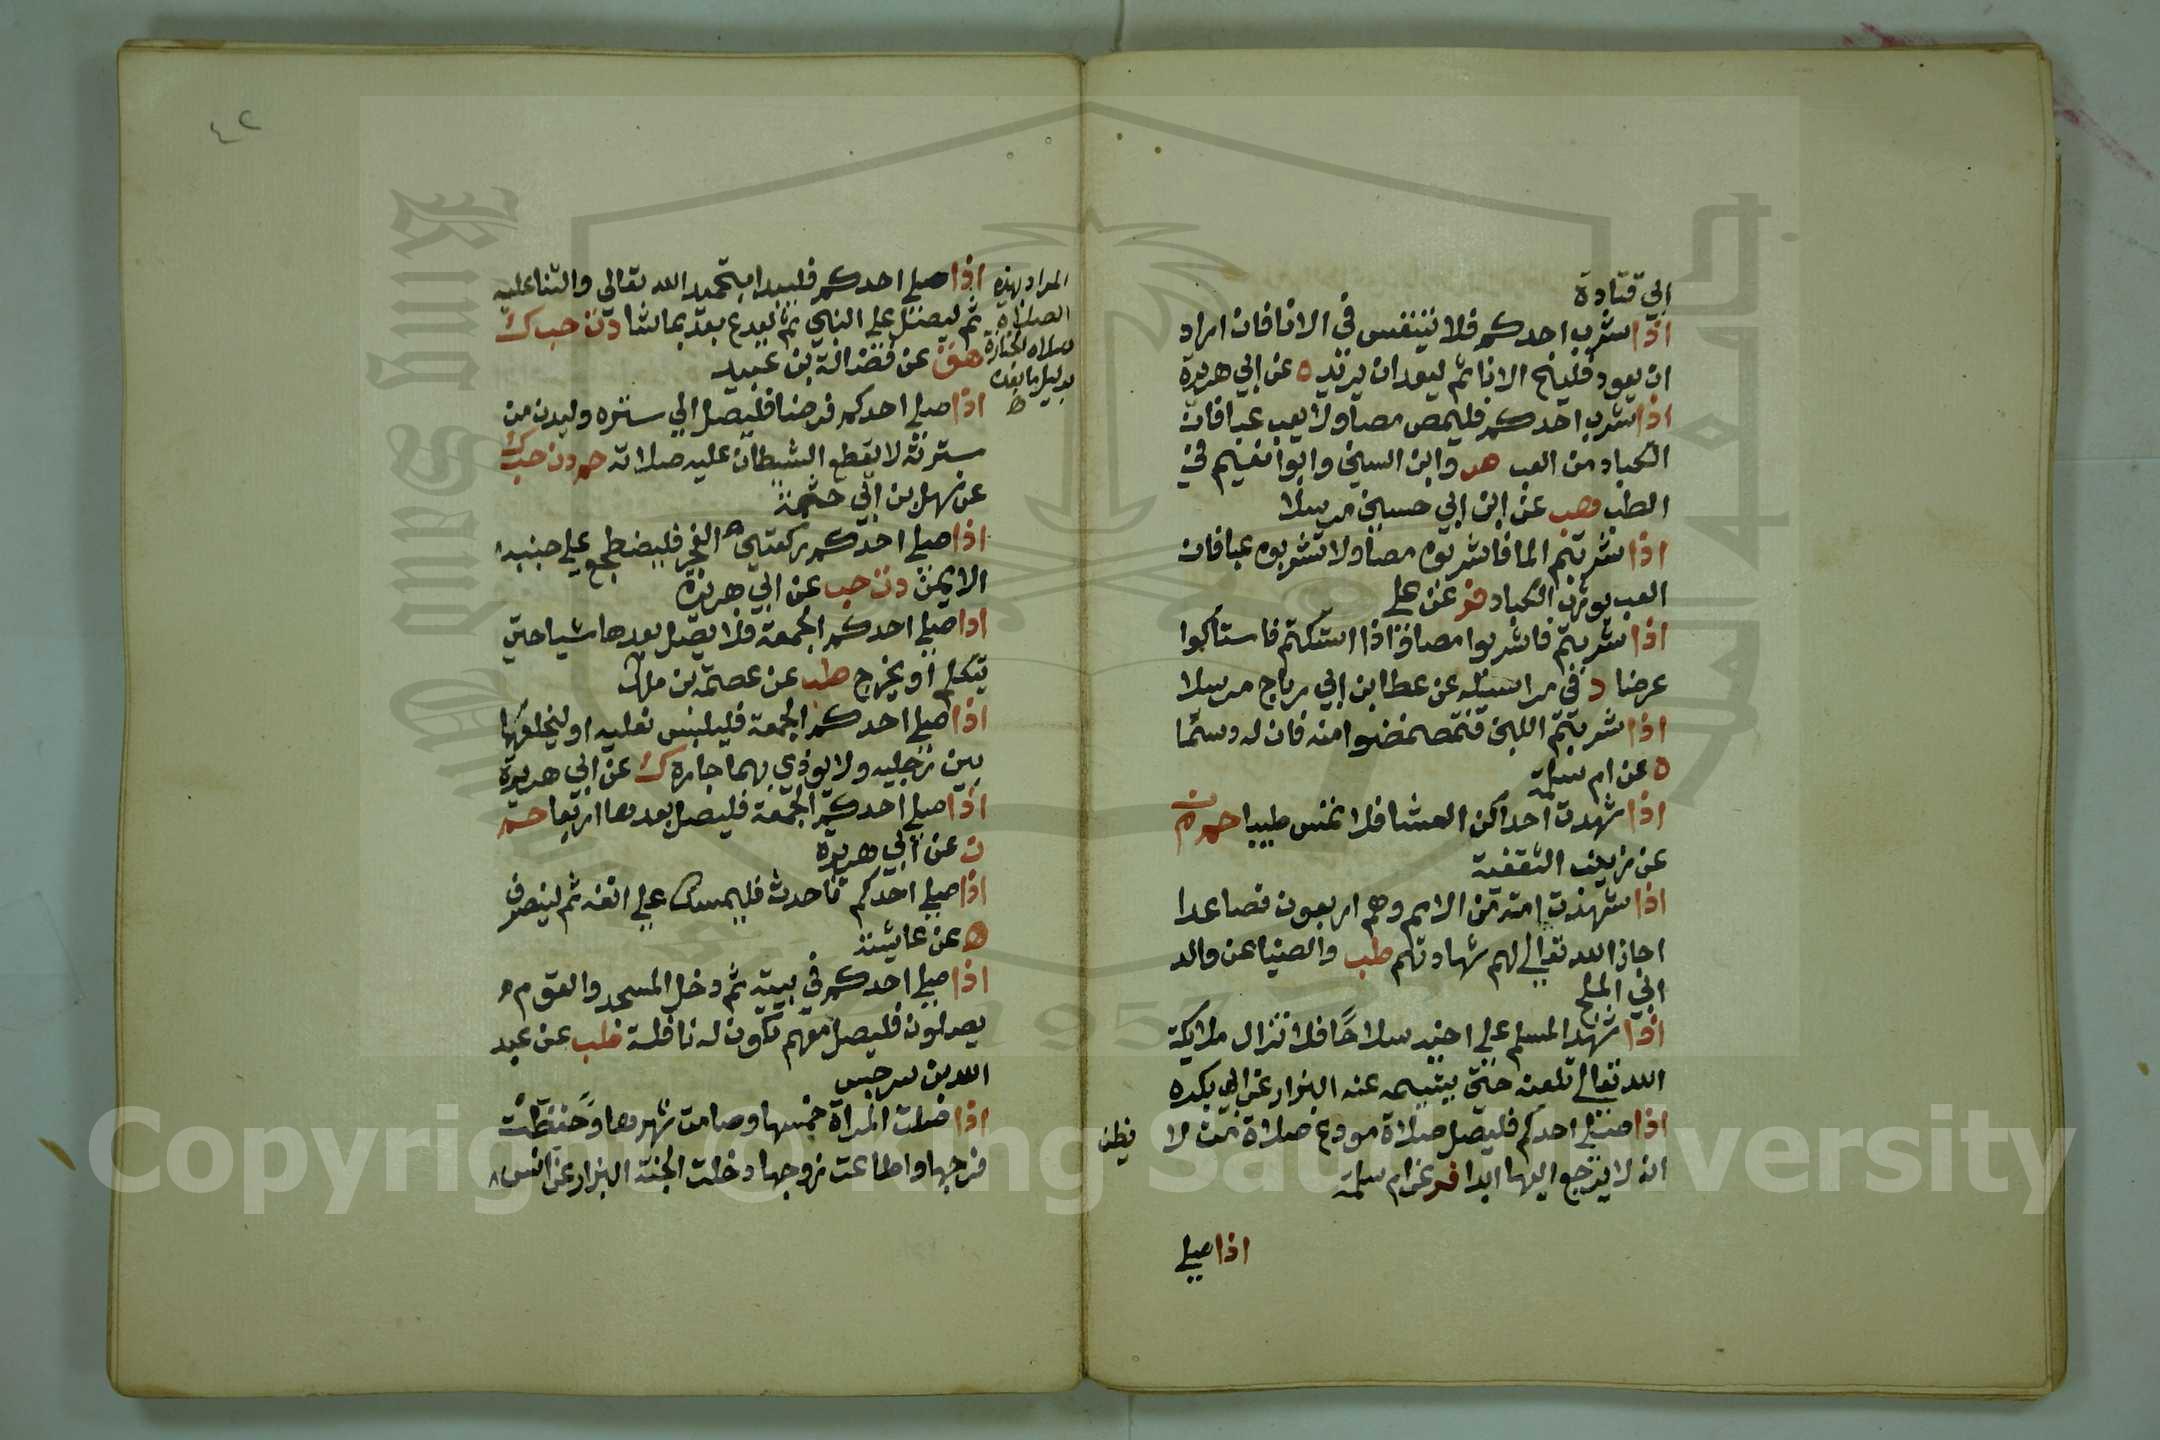 ابي قتادة
اذا شرب احدكم فلا يتنفس في الانا فان اراد
ان يعود فلينح الانا ثم ليعد ان يريد ه عن ابي هريرة
اذا شرب احدكم فليمص مصا ولا يعب عبا فان
الكباد من العب هب وابن السني وابوا نعيم في
الطب هب عن ابن ابي حسين مرسلا
اذا شربتم الما فاشربوه مصا ولا تشربوه عبا فان
العب يورث الكباد فر عن علي
اذا شربتم فاشربوا مصا واذا استكتم فاستاكوا
عرضا د في مراسيله عن عطا ابن ابي رباح مرسلا
اذا شربتم اللبن فتمضمضوا منه فان له دسما
ه عن ام سلمة
اذا شهدت احداكن العشا فلا تمس طيبا حم م ن
عن زينب الثقفية
اذا شهدت امة من الامم وهم اربعون فصاعدا
اجاز الله تعالى لهم شهادتهم طب والضيا عن والد
ابي المليح
اذا شهر المسلم على اخيه سلاحا فلا تزال ملايكة
الله تعالى تلعنه حتى يشيمه عنه البزار عن ابي بكره
اذا صلى احدكم فليصل صلاة مودع صلاة من لا يظن
انه لا يرجع اليها ابدا فر عن ام سلمة
اذا صلى
٤٢
المراد بهذه
الصلاة
صلاة الجنازة
بدليل ما بعده
اذا صلى احدكم فليبدا بتحميد الله تعالى والثنا عليه
ثم ليصل على النبي ثم ليدع بعد بما شا د ت حب ك
هق عن فضالة بن عبيد
اذا صلى احدكم فرضا فليصل الي ستره وليدن من
سترته لا يقطع الشيطان عليه صلاته حم د ن حب ك
عن سهل بن ابي حثمة
اذا صلى احدكم ركعتي الفجر فليضطجع على جنبه
الايمن د ت حب عن ابي هريرة
اذا صلى احدكم الجمعة فلا يصل بعدها شيا حتى
يتكلم او يخرج طب عن عصمة بن ملك
اذا صلى احدكم الجمعة فليلبس نعليه او ليخلعهما
بين رجليه ولا يوذي بهما جاره ك عن ابي هريرة
اذا صلى احدكم الجمعة فليصل بعدها اربعا حم
ن عن ابي هريره
اذا صلى احدكم فاحدث فليمسك على انفه ثم لينصرف
ه عن عايشة
اذا صلى احدكم في بيته ثم دخل المسجد والقوم
يصلون فليصل معهم تكون له نافلة طب عن عبد
الله بن سرجس
اذا صلت المراة خمسها وصامت شهرها وحفظت
فرجها واطاعت زوجها دخلت الجنة البزار عن انس
King Saud University
جامعة الملك سعود
1957
Copyright © King Saud University